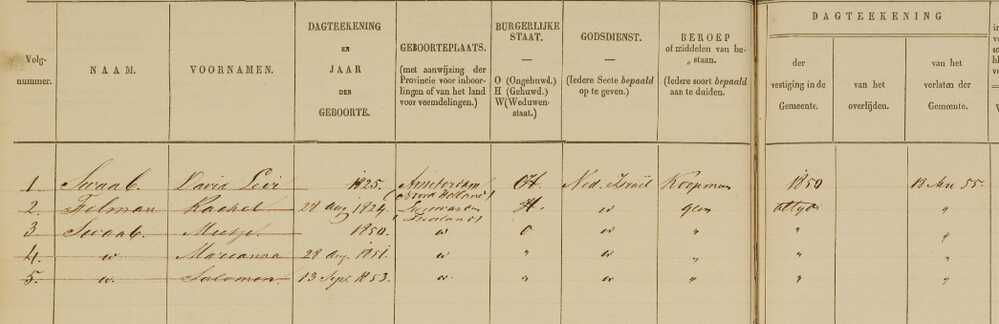 Volg-
nummer.
NAAM.
VOORNAMEN.
DAGTEEKENING
EN
JAAR
DER
GEBOORTE.
GEBOORTEPLAATS.
(met aanwijzing der
Provincie voor inboor-
lingen of van het land
voor vreemdelingen.)
BURGERLIJKE
STAAT.
O (Ongehuwd.)
H (Gehuwd.)
W (Weduwen-
staat.)
GODSDIENST.
(Iedere Secte bepaald
op te geven.)
BEROEP
of middelen van be-
staan.
(Iedere soort bepaald
aan te duiden.)
DAGTEEKENING
der
vestiging in de
Gemeente.
van het
overlijden.
van het
verlaten der
Gemeente.
1 Swaab. David Levi 1825. Amsterdam (Noord Holland) H Ned. Israël Koopman 1850 55.
2 Rachel 28 1824. Leeuwarden (Friesland) H " geen altyd "
3 Swaab. 1850. " O " " " "
4 " Marianna 28 aug. 1851. " " " " " "
5. " Salomon. 13 Sept 1853. " " " " " "